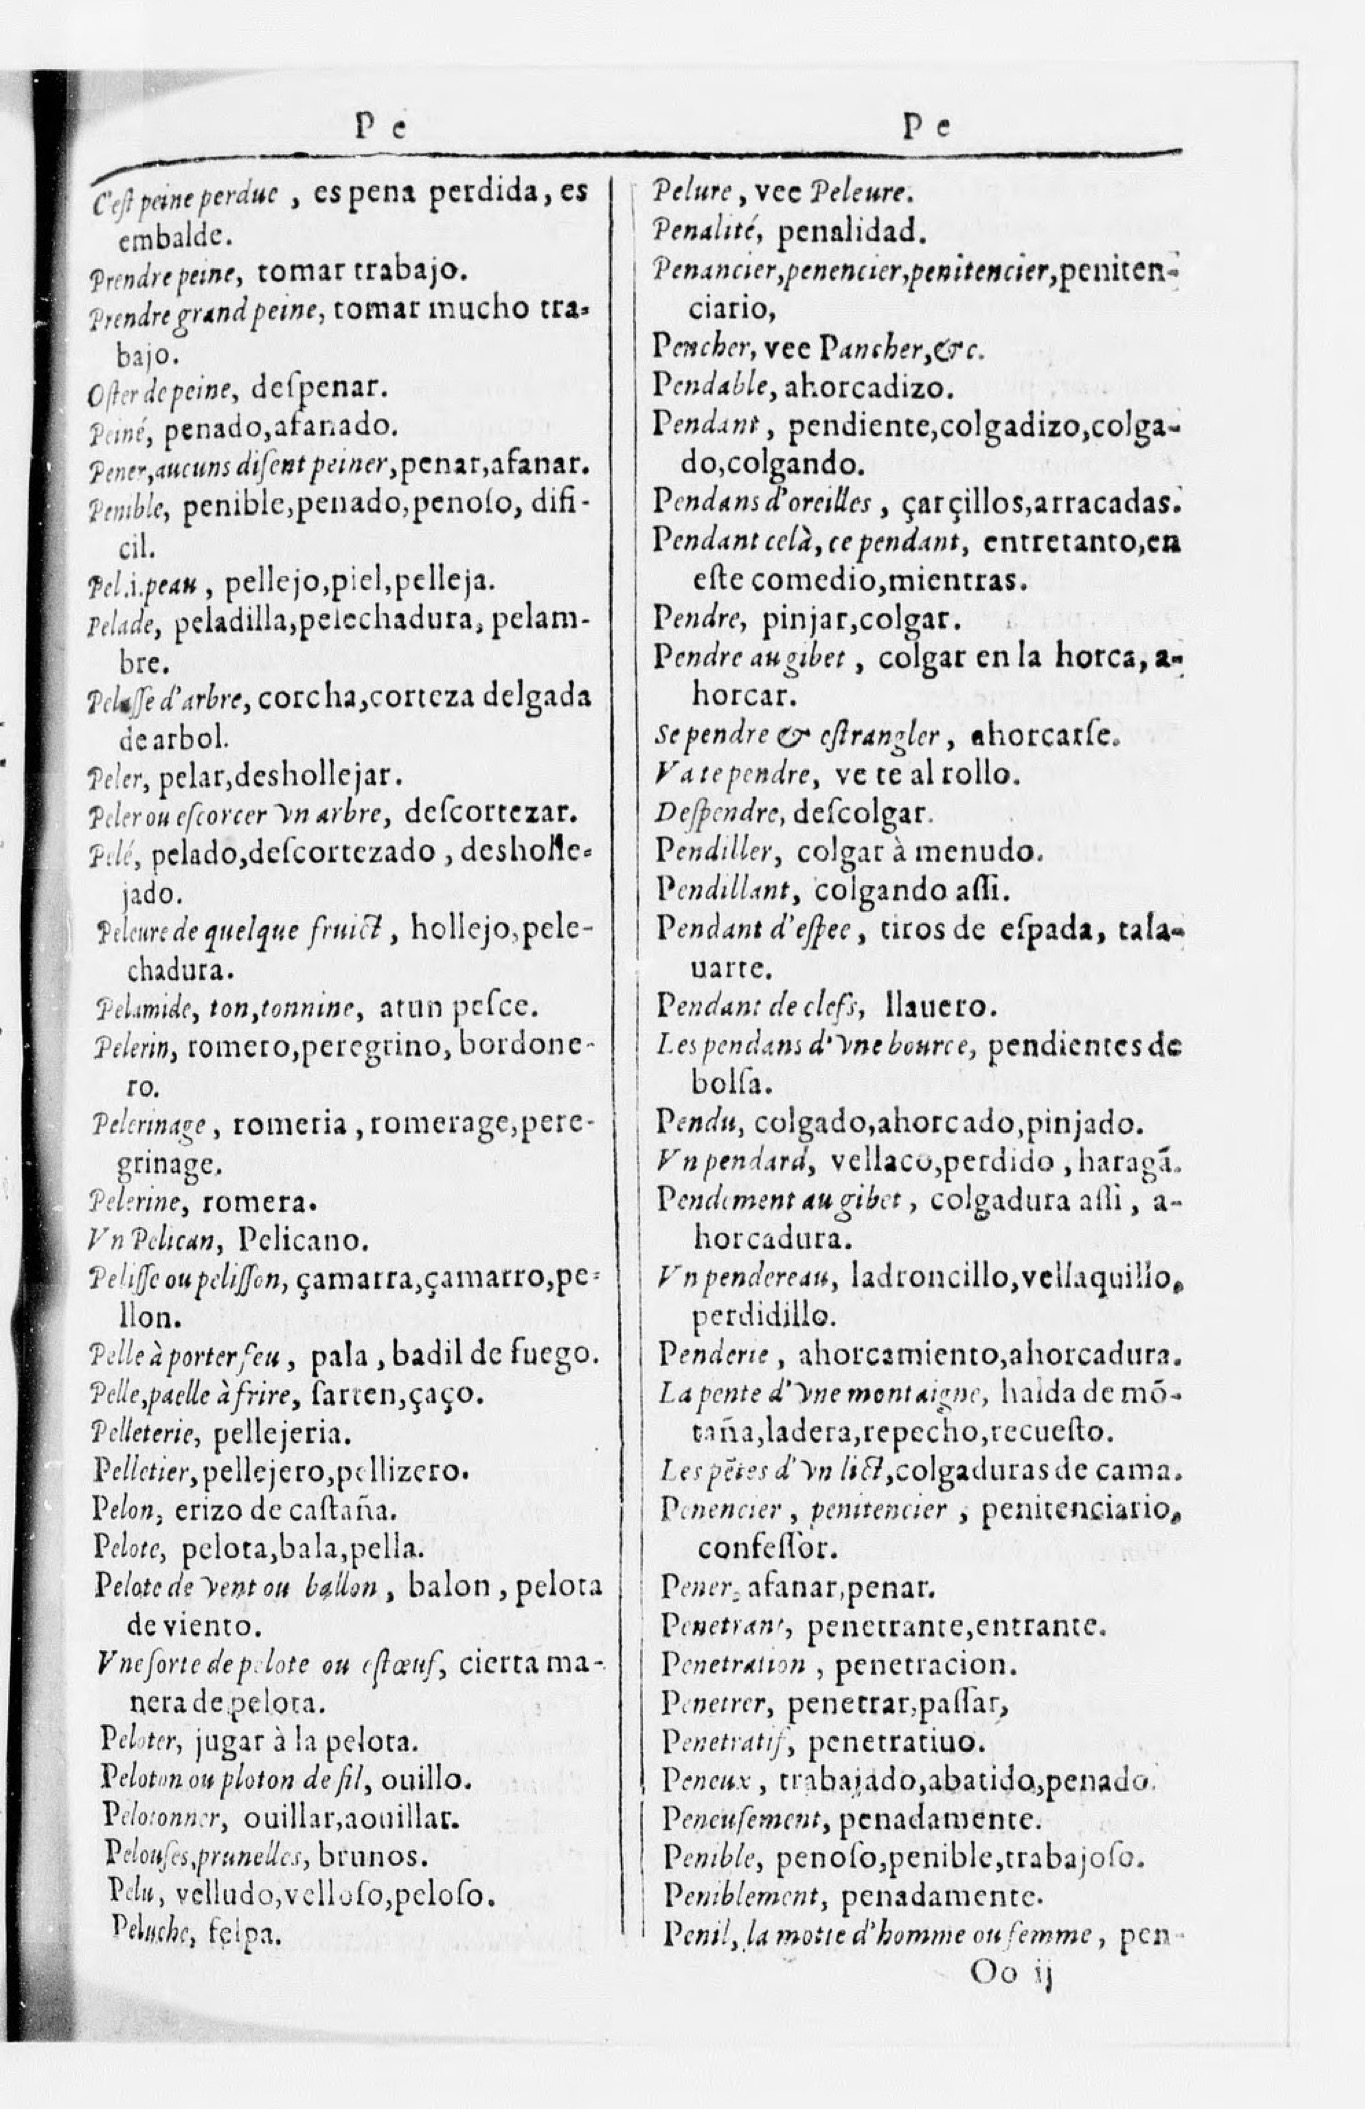 P e
C'eſt peine perdue, es pena perdida, es
embalde.
Prendre peine, tomar trabajo.
Prendre grand peine, tomar mucho tra-
bajo.
Oſter de peine, deſpenar.
Peiné, penado, afanado.
Pener, aucuns diſent peiner, penar, afanar.
Penible, penible, penado, penoſo, difi-
cil.
Pel.i.peau, pellejo, piel, pelleja.
Pelade, peladilla, pelechadura, pelam-
bre.
Pelaſſe d'arbre, corcha, corteza delgada
de arbol.
Peler, pelar, deshollejar.
Peler ou eſcorcer vn arbre, deſcortezar.
Pelé, pelado, deſcortezado, desholle-
jado.
Peleure de quelque fruict, hollejo, pele-
chadura.
Pelamide, ton, tonnine, atun peſce.
Pelerin, romero, peregrino, bordone-
ro.
Pelerinage, romeria, romerage, pere-
grinage.
Pelerine, romera.
Vn Pelican, Pelicano.
Peliſſe ou peliſſon, çamarra, çamarro, pe-
llon.
Pelle à porter feu, pala, badil de fuego.
Pelle, paelle à frire, ſarten, çaço.
Pelleterie, pellejeria.
Pelletier, pellejero, pellizero.
Pelon, erizo de caſtaña.
Pelote, pelota, bala, pella.
Pelote de vent ou ballon, balon, pelota
de viento.
Vne ſorte de pelote ou eſtœuf, cierta ma-
nera de pelota.
Peloter, jugar à la pelota.
Peloton ou ploton de fil, ouillo.
Pelotonner, ouillar, aouillar.
Pelouſes, prunelles, brunos.
Pelu, velludo, velloſo, peloſo.
Peluche, felpa.
P e
Pelure, vee Peleure.
Penalité, penalidad.
Penancier, penencier, penitencier, peniten-
ciario,
Pencher, vee Pancher, &c.
Pendable, ahorcadizo.
Pendant, pendiente, colgadizo, colga-
do, colgando.
Pendans d'oreilles, çarçillos, arracadas.
Pendant celà, ce pendant, entretanto, en
eſte comedio, mientras.
Pendre, pinjar, colgar.
Pendre au gibet, colgar en la horca, a-
horcar.
Se pendre & eſtrangler, ahorcarſe.
Va te pendre, ve te al rollo.
Deſpendre, deſcolgar.
Pendiller, colgar à menudo.
Pendillant, colgando aſſi.
Pendant d'eſpee, tiros de eſpada, tala-
uarte.
Pendant de clefs, llauero.
Les pendans d'vne bource, pendientes de
bolſa.
Pendu, colgado, ahorcado, pinjado.
Vn pendard, vellaco, perdido, haragã.
Pendement au gibet, colgadura aſſi, a-
horcadura.
Vn pendereau, ladroncillo, vellaquillo,
perdidillo.
Penderie, ahorcamiento, ahorcadura.
La pente d'vne montaigne, halda de mõ-
taña, ladera, repecho, recueſto.
Les pẽtes d'vn lict, colgaduras de cama.
Penencier, penitencier, penitenciario,
confeſſor.
Pener, afanar, penar.
Penetrant, penetrante, entrante.
Penetration, penetracion.
Penetrer, penetrar, paſſar,
Penetratif, penetratiuo.
Peneux, trabajado, abatido, penado.
Peneuſement, penadamente.
Penible, penoſo, penible, trabajoſo.
Peniblement, penadamente.
Penil, la motte d'homme ou femme, pen-
Oo ij